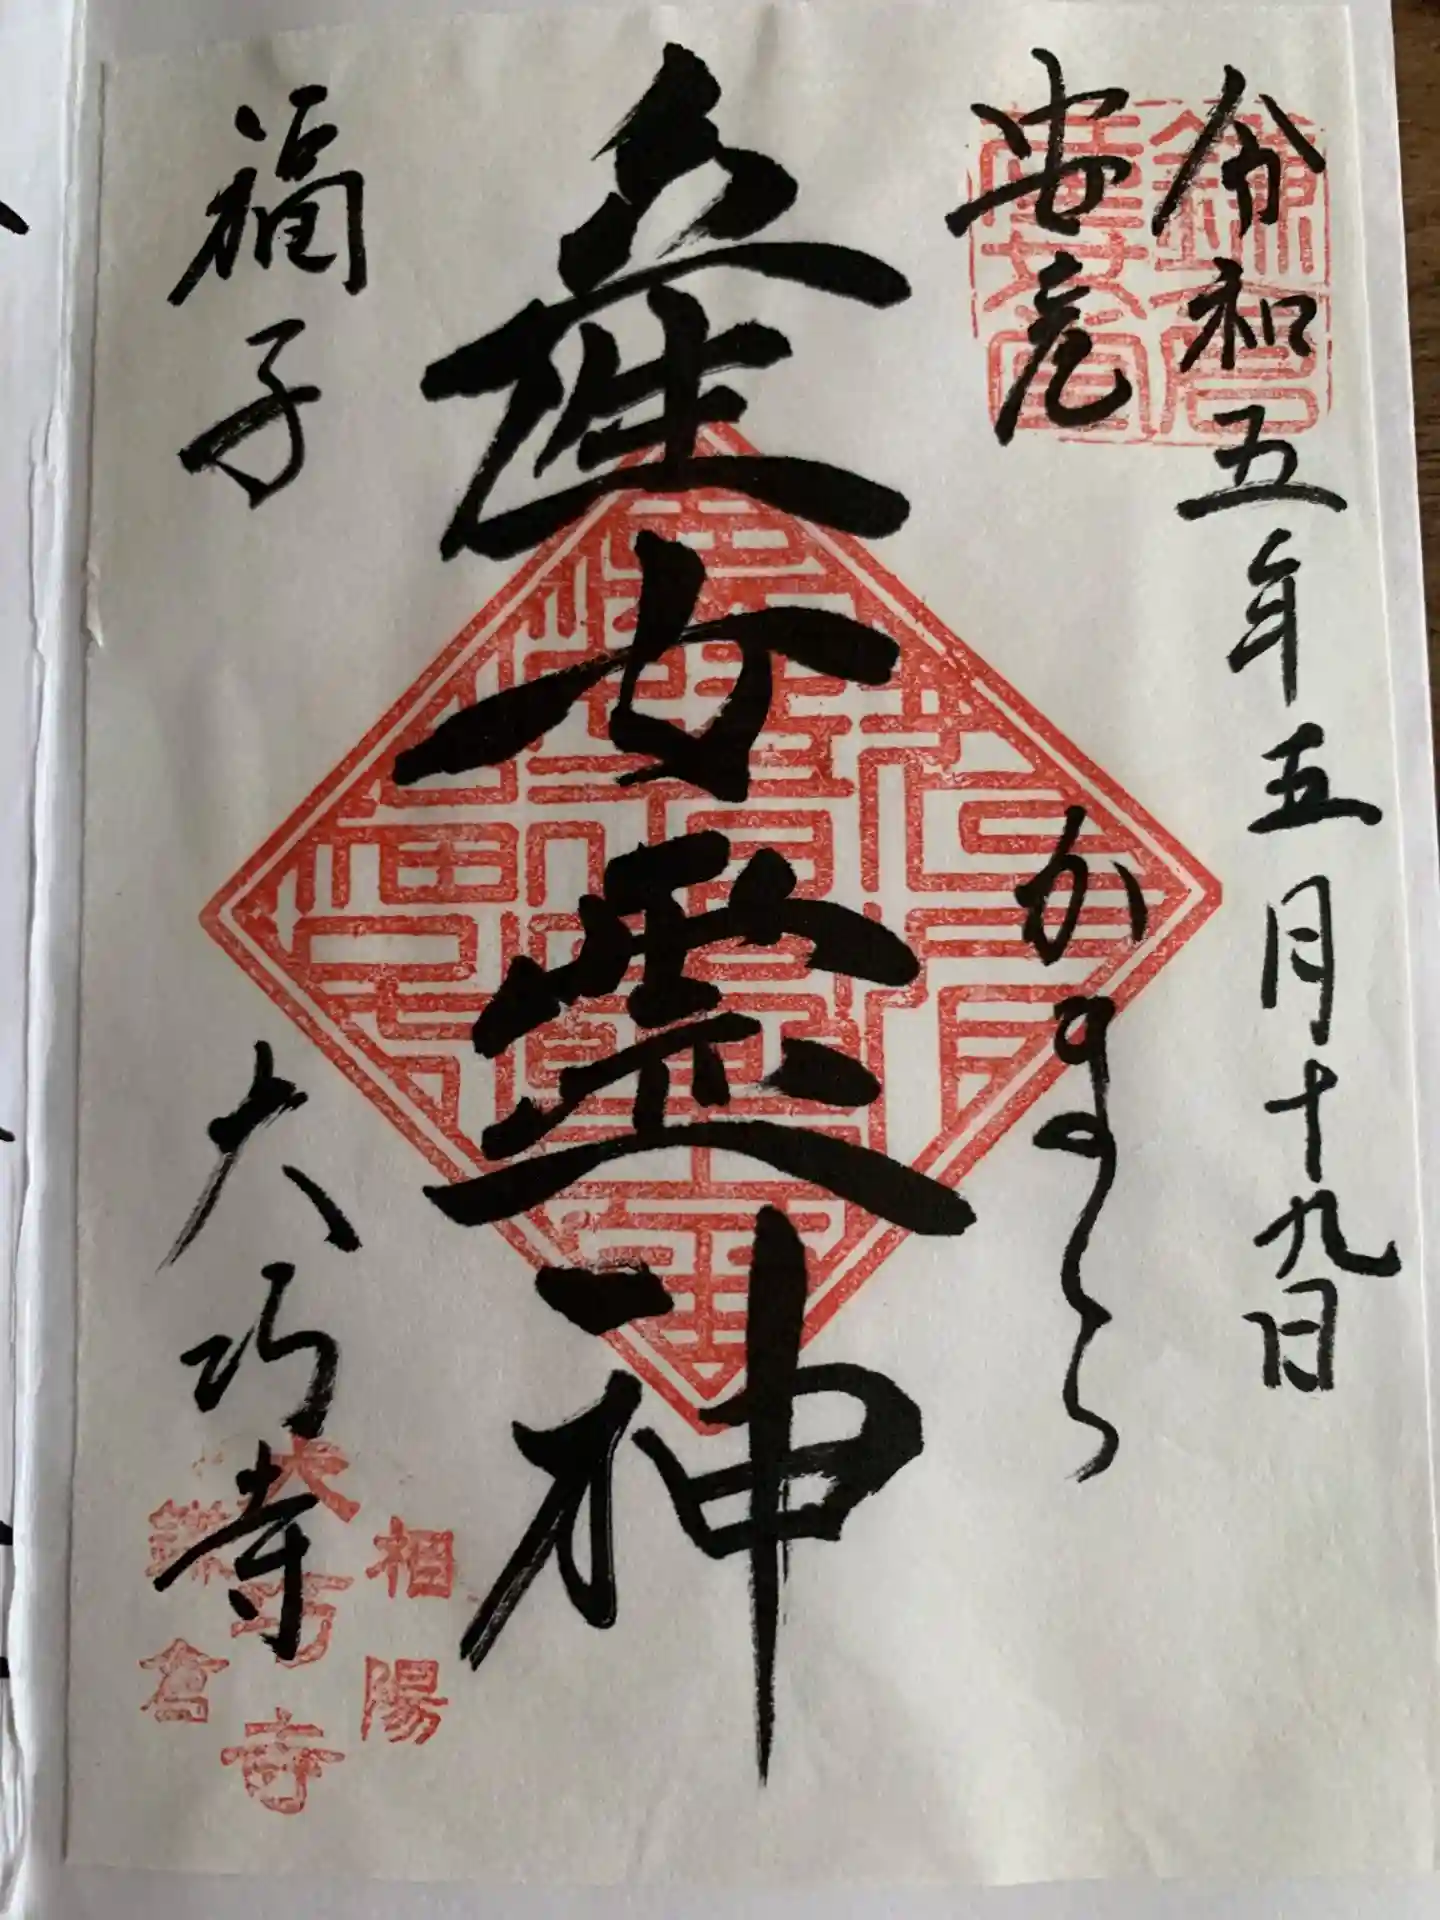 令和五年五月十九日
安産
かまくら
産女霊神
福子
大巧寺
鎌倉
産女
相陽
鎌倉
大巧寺